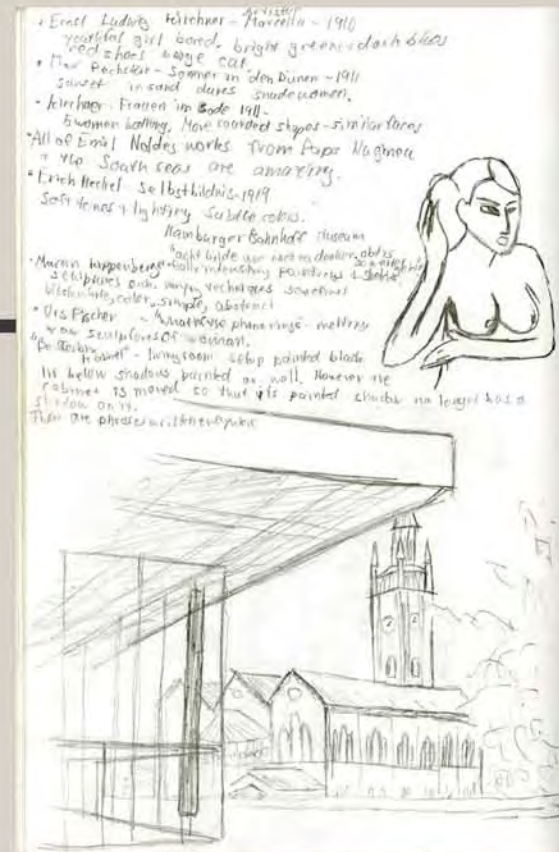 Artistin
• Ernst Ludwig Kirchner - Marcella - 1910
youthful girl bored, bright greens + dark blues
red shoes beige cat.
• Max Pechstein - Sommer in den Dünen - 1911
sunset in sand dunes 5 nude women.
- Kirchner - Frauen im Bade 1911 -
5 women bathing, More rounded shapes - similar faces
• All of Emil Noldes works from Papa Nuginea
+ the South seas are amazing.
• Erich Heckel Selbstbildnis - 1919
Soft tones + lighting subtle colors.
Hamburger Bahnhoff Museum
• Martin Kippenberger -
sculptures each varying techniques sometimes
black + white, color, simple, abstract
• Urs Fischer - phone rings - melting
wax sculptures of woman.
- living room setup painted black
lit below shadows painted on wall. However the
cabinet is moved so that its painted shadow no longer has a
shadow on it.
There are phrases written